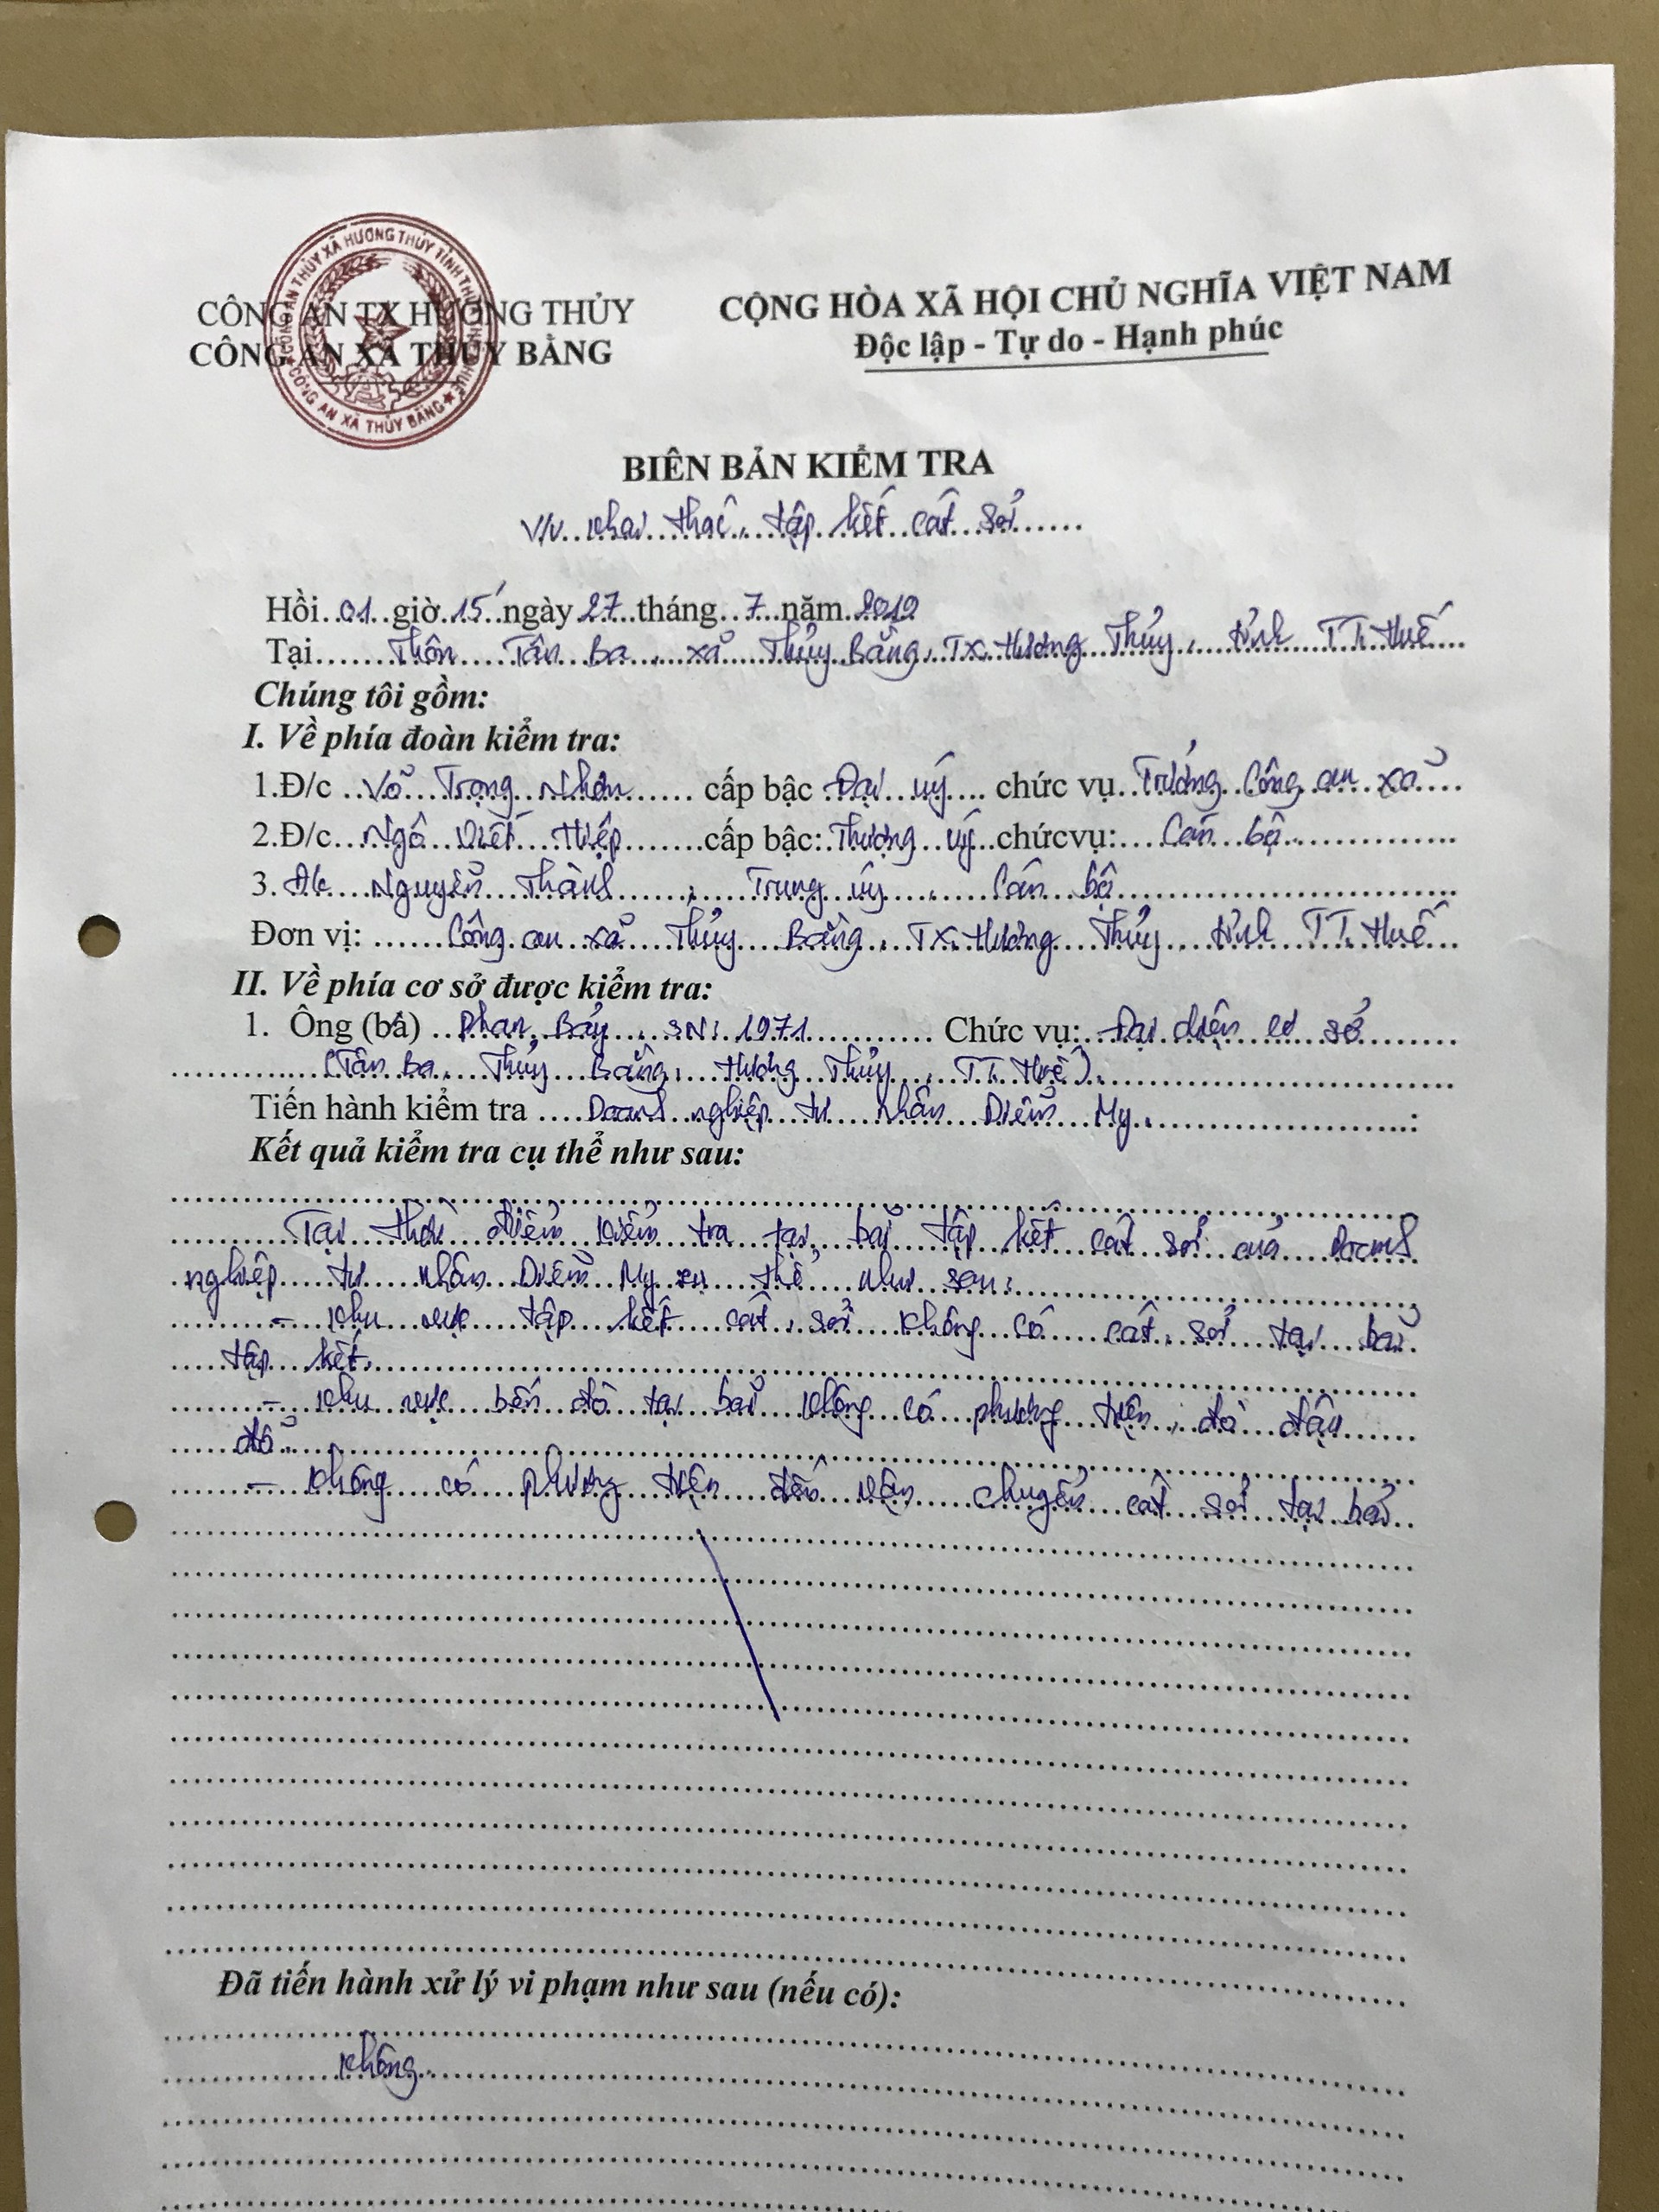 CÔNG AN THỦY XÃ HƯƠNG THỦY TỈNH THỪA THIÊN HUẾ
CÔNG AN XÃ THỦY BẰNG
CÔNG AN TX HƯƠNG THỦY
CÔNG AN XÃ THỦY BẰNG
CỘNG HÒA XÃ HỘI CHỦ NGHĨA VIỆT NAM
Độc lập - Tự do - Hạnh phúc
BIÊN BẢN KIỂM TRA
V/v khai thác, tập kết cát sỏi
Hồi 01 giờ 15' ngày 27 tháng 7 năm
Tại Thôn Tân Ba, xã Thủy Bằng, TX. Hương Thủy, tỉnh TT. Huế
Chúng tôi gồm:
I. Về phía đoàn kiểm tra:
1.Đ/c Võ Trọng Nhơn cấp bậc Đại uý chức vụ Trưởng Công an xã
2.Đ/c Ngô Viết Hiệp cấp bậc: Thượng uý chứcvụ: Cán bộ
3. Đ/c Nguyễn Thành, Trung úy, Cán bộ
Đơn vị: Công an xã Thủy Bằng, TX. Hương Thủy tỉnh TT. Huế
II. Về phía cơ sở được kiểm tra:
1. Ông (bà) Phan Bảy, SN: 1971 Chức vụ: Đại diện cơ sở
(Tân Ba, Thủy Bằng, Hương Thủy, TT. Huế).
Tiến hành kiểm tra Doanh nghiệp tư nhân Diễm My. :
Kết quả kiểm tra cụ thể như sau:
Tại thời điểm kiểm tra tại bãi tập kết cát sỏi của Doanh
nghiệp tư nhân Diễm My cụ thể như sau:
- Khu vực tập kết cát, sỏi không có cát, sỏi tại bãi
tập kết.
- Khu vực bến đò tại bãi không có phương tiện, đò đậu
đỗ.
- Không có phương tiện đến vận chuyển cát sỏi tại bãi.
Đã tiến hành xử lý vi phạm như sau (nếu có):
Không.